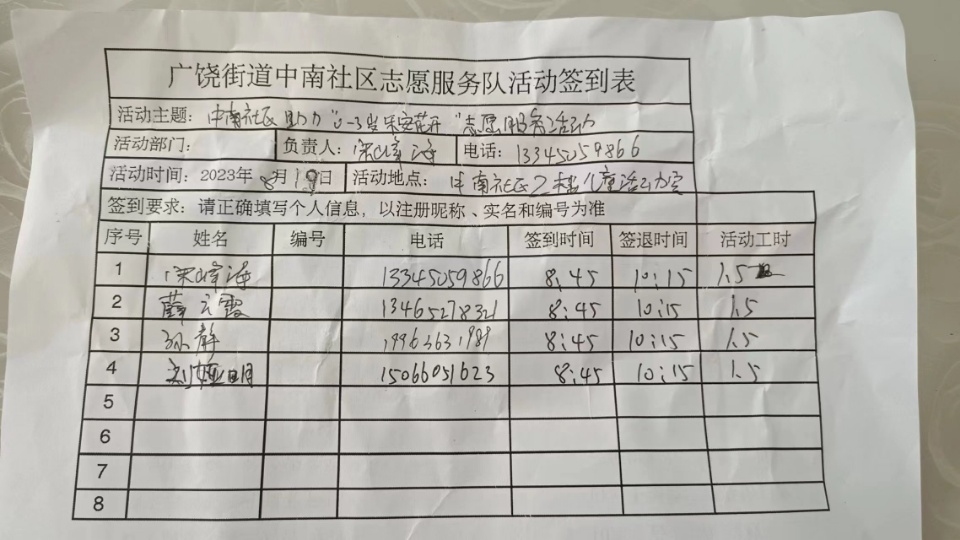 广饶街道中南社区志愿服务队活动签到表
活动主题：中南社区助力"0-3岁 花开"志愿服务活动
活动部门： 负责人： 海 电话：13345059866
活动时间：2023年8月19日 活动地点：中南社区二楼儿童活动室
签到要求：请正确填写个人信息，以注册昵称、实名和编号为准
序号 姓名 编号 电话 签到时间 签退时间 活动工时
1 海 13345059866 8:45 10:15 1.5
2 薛云霞 13465278321 8:45 10:15 1.5
3 孙静 19963631989 8:45 10:15 1.5
4 刘娅明 15066051623 8:45 10:15 1.5
5
6
7
8